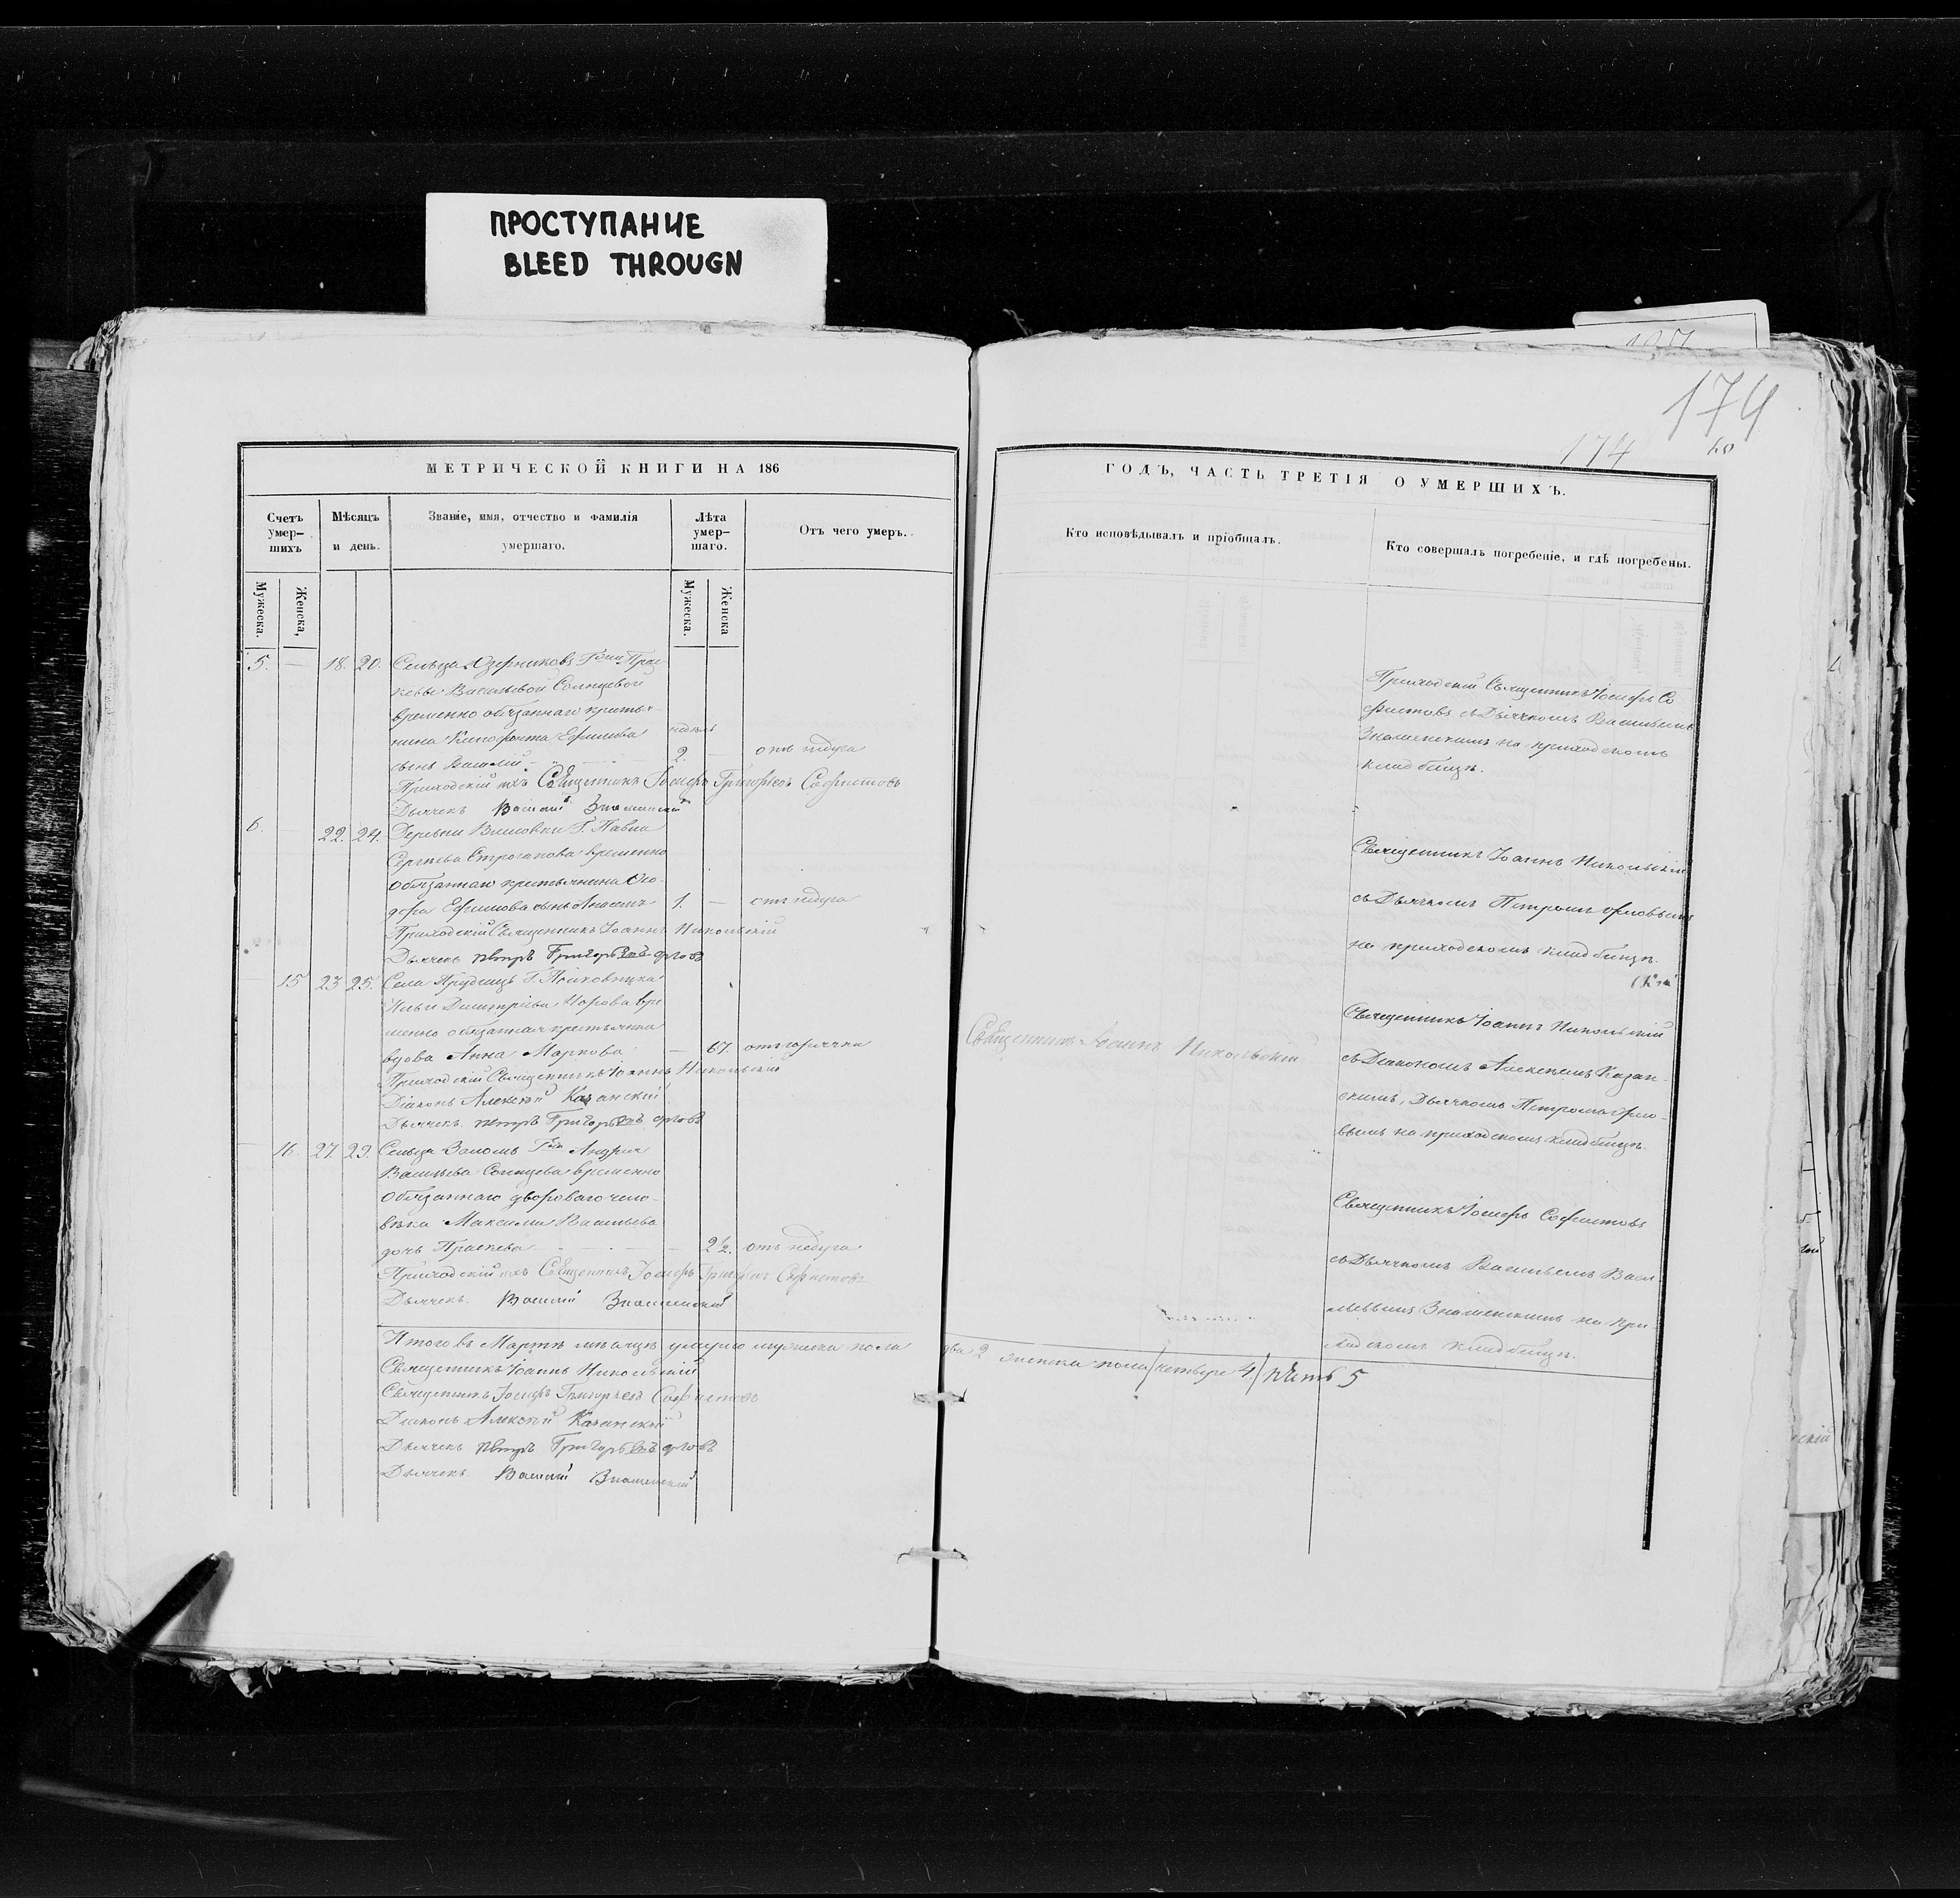 ПРОСТУПАНИЕ
BLEED THROUGN
174
174
МЕТРИЧЕСКОЙ КНИГИ НА 186
Счетъ умер-шихъ
Мѣсяцъ и день.
Званіе, имя, отчество и фамилія умершаго.
Лѣта умер-шаго.
Отъ чего умеръ.
Мужеска.
Женска,
Мужеска.
Женска
5. — 18. 20. Сельца
Васильевой Солнцевой
временно обязаннаго крестья-
нина Ефимова недѣль
сынъ Василій 2. — отъ недуга
Приходскій ихъ Священникъ Іосифъ Григорьевъ Софистовъ
Дьячекъ Василий Знаменский
6. — 22. 24. Деревни Г. Павла
Сергѣева Строганова временно
обязаннаго крестьянина Ѳео-
дора Ефимова сынъ 1. — отъ недуга
Приходскій Священникъ Іоаннъ Никольскій
Дьячекъ Петръ Григорьевъ Орловъ
— 15 23 25. Села Прудищъ Г. Полковника
Ильи Димитріева Норова вре
менно обязанная крестьянка
вдова Анна Маркова — 67. отъ горячки
Приходскій Священникъ Іоаннъ Никольскій
Діаконъ Алексѣй Казанскій
Дьячекъ Петръ Григорьевъ Орловъ
— 16. 27. 29. Сельца Андрея
Васильева Солнцева временно
обязаннаго двороваго чело-
вѣка Максима Васильева
дочь — 2½. отъ недуга
Приходскій ихъ Священникъ Іосифъ Григорьевъ Софистовъ
Дьячекъ. Василий Знаменский
Итого въ Мартѣ мѣсяцѣ умерло мужеска пола
Священникъ Іоаннъ Никольскій
Священникъ Іосифъ Григорьевъ Софистовъ
Діаконъ Алексѣй Казанскій
Дьячекъ Петръ Григорьевъ Орловъ
Дьячекъ. Василий Знаменский
ГОДЪ, ЧАСТЬ ТРЕТІЯ О УМЕРШИХЪ.
Кто исповѣдывалъ и пріобщалъ.
Кто совершалъ погребеніе, и гдѣ погребены.
Приходскій Священникъ Іосифъ Со
фистовъ съ Дьячкомъ Васильемъ
Знаменскимъ на приходскомъ
кладбищѣ.
Священникъ Іоаннъ Никольскій
съ Дьячкомъ Петромъ Орловымъ
на приходскомъ кладбищѣ.
Священникъ Іоаннъ Никольскій
Священникъ Іоаннъ Никольскій
съ Діакономъ Алексѣемъ Казан-
скимъ, Дьячкомъ Петромъ Орло-
вымъ на приходскомъ кладбищѣ.
Священникъ Іосифъ Софистовъ
съ Дьячкомъ Васильемъ Васи
льевымъ Знаменскимъ на при-
ходскомъ кладбищѣ.
два 2 женска пола